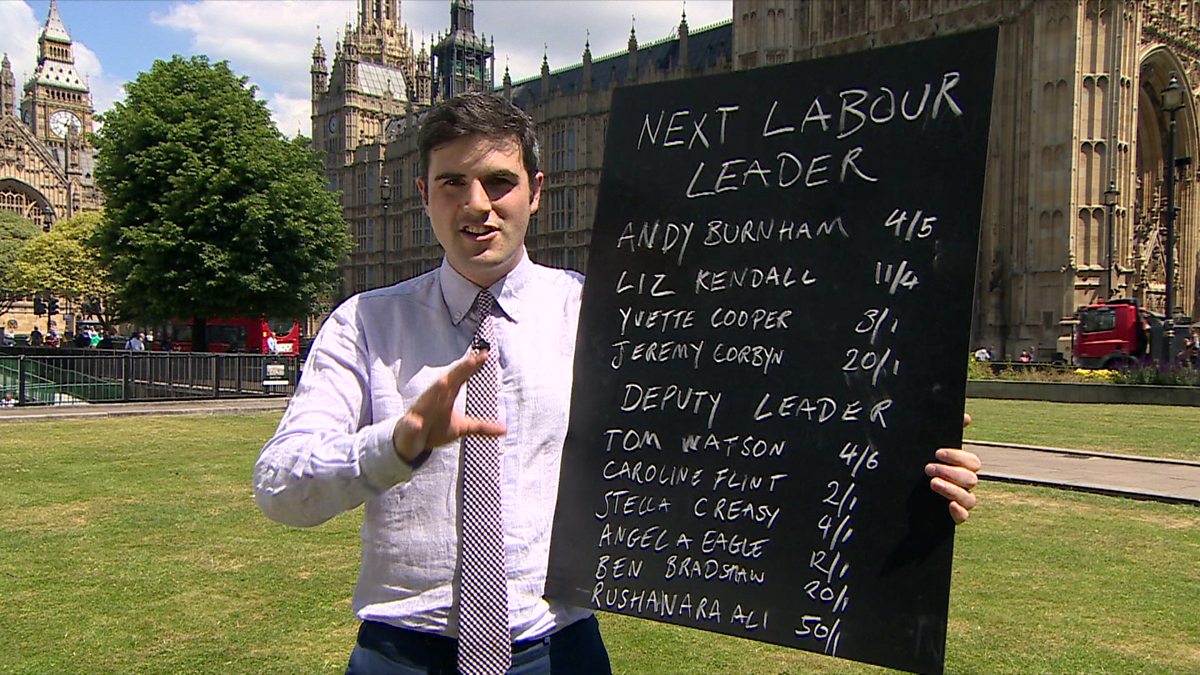 NEXT LABOUR
LEADER
ANDY BURNHAM 4/5
LIZ KENDALL 11/4
YVETTE COOPER 3/1
JEREMY CORBYN 20/1
DEPUTY LEADER
TOM WATSON 4/6
CAROLINE FLINT 2/1
STELLA CREASY 4/1
ANGELA EAGLE 12/1
BEN BRADSHAW 20/1
RUSHANARA ALI 50/1